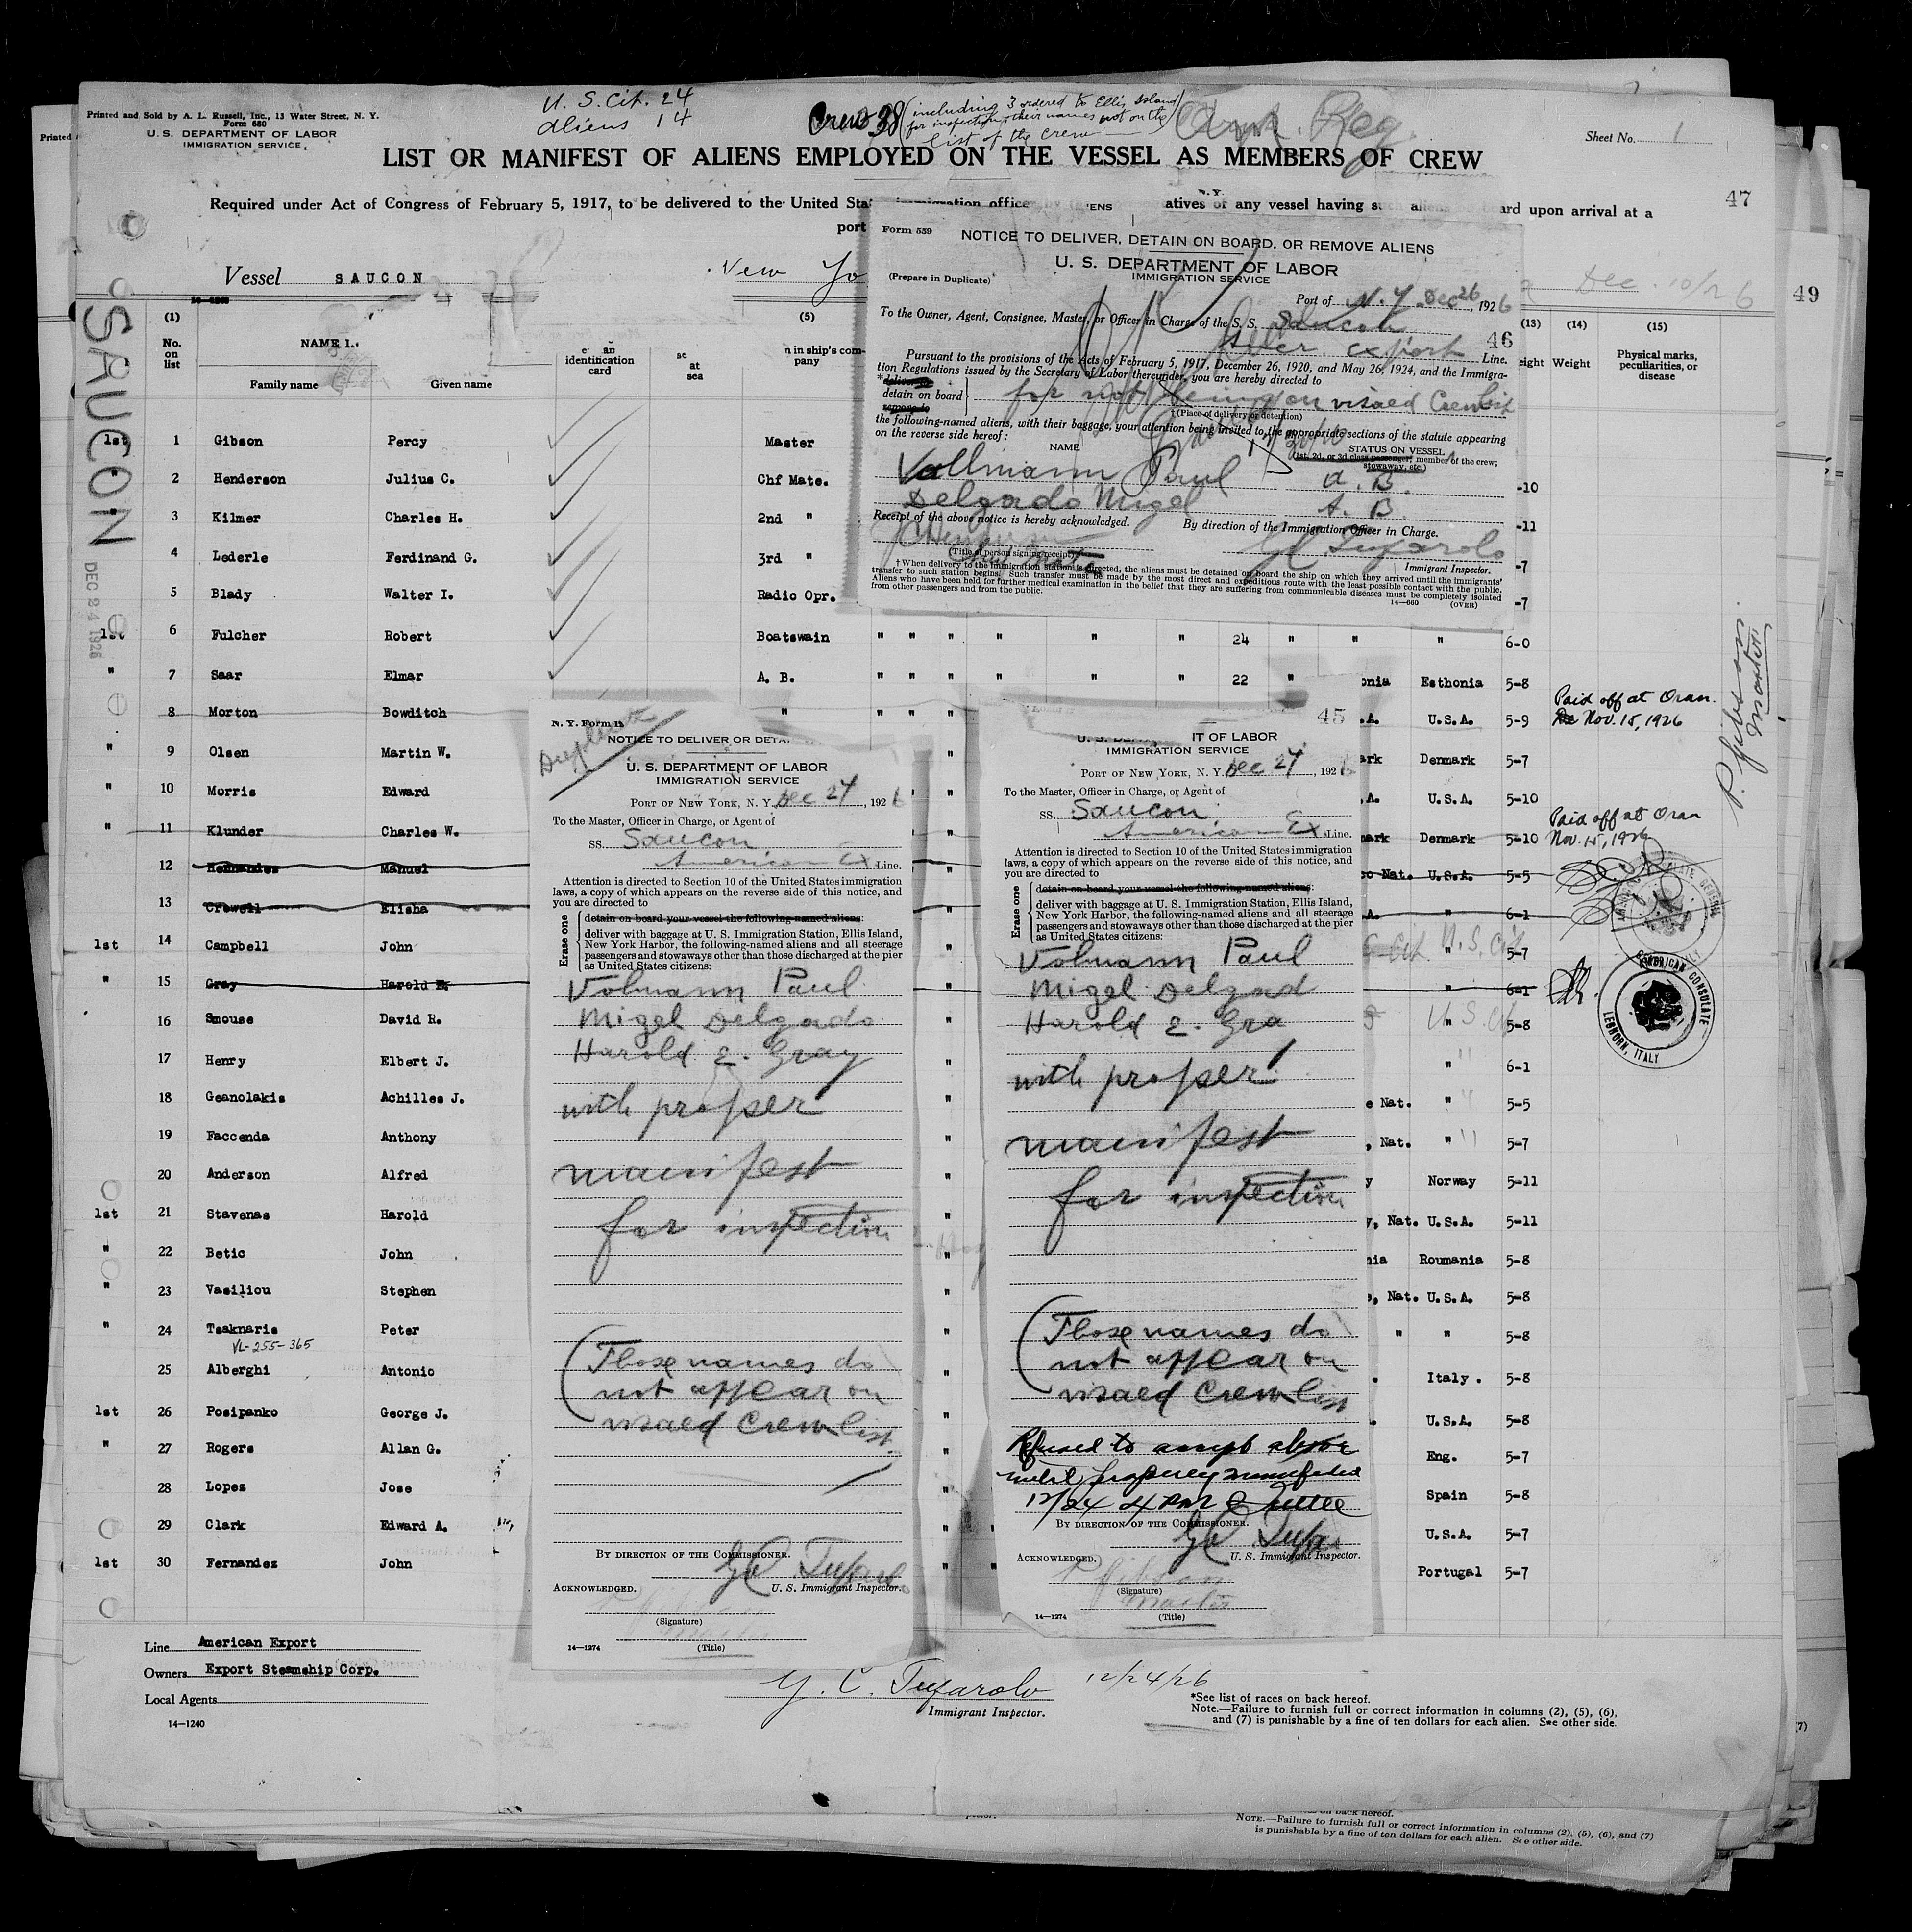 Printed and Sold by A. L. Russell, Inc., 13 Water Street, N. Y.
Form 680
U. S. DEPARTMENT OF LABOR
IMMIGRATION SERVICE
Printed
U. S. Cit. 24
Aliens 14
Crew 38 (including 3 ordered to Ellis Island
for inspection, their names not on the
list of the crew)
Sheet No. 1
LIST OR MANIFEST OF ALIENS EMPLOYED ON THE VESSEL AS MEMBERS OF CREW
47
Required under Act of Congress of February 5, 1917, to be delivered to the United Sta immigration office atives of any vessel having s alien ard upon arrival at a
port
Vessel SAUCON
New Yo
Dec. 10/26
49
SAUCON
DEC 24 1926
(1) (5) (13) (14) (15)
No. on list
NAME I
Family name Given name
identification card
at sea
n in ship's company
eight Weight
Physical marks, peculiarities, or disease
1st 1 Gibson Percy Master
" 2 Henderson Julius C. Chf Mate. -10
3 Kilmer Charles H. 2nd " -11
4 Lederle Ferdinand G. 3rd " -7
5 Blady Walter I. Radio Opr. -7
1st 6 Fulcher Robert Boatswain " " " " " " 24 " " " 6-0
" 7 Saar Elmar A. B. " " " " " " 22 " onia Esthonia 5-8
8 Morton Bowditch " " " " .A. U.S.A. 5-9 Paid off at Oran.
Nov. 15, 1926
" 9 Olsen Martin W. " ark Denmark 5-7
" 10 Morris Edward " .A. U.S.A. 5-10
" 11 Klunder Charles W. " mark Denmark 5-10 Paid off at Oran
Nov. 15, 1926
12 Hernandez Manuel " co Nat. U.S.A. 5-5
13 Crowell Elisha " A. " 6-1
1st 14 Campbell John " Cit " U.S. Cit 5-7
" 15 Gray Harold E. " " 6-1
16 Smouse David R. " " U.S. Cit 5-8
17 Henry Elbert J. " " " 6-1
18 Geanolakis Achilles J. " e Nat. " " 5-5
19 Faccenda Anthony " , Nat. " " 5-7
20 Anderson Alfred " y Norway 5-11
1st 21 Stavenas Harold " y, Nat. U.S.A. 5-11
" 22 Betic John " nia Roumania 5-8
" 23 Vasiliou Stephen " e, Nat. U.S.A. 5-8
" 24 Tsaknaris Peter " " " 5-8
VL-255-365
25 Alberghi Antonio " Italy. 5-8
1st 26 Posipanko George J. " U.S.A. 5-8
" 27 Rogers Allan G. " Eng. 5-7
28 Lopes Jose " Spain 5-8
29 Clark Edward A. " " U.S.A. 5-7
1st 30 Fernandez John " " Portugal 5-7
P. Gibson
Master.
AMERICAN CONSULATE
LEGHORN, ITALY
Line American Export
Owners Export Steamship Corp.
Local Agents
14—1240
12/24/26
Immigrant Inspector.
*See list of races on back hereof.
Note.—Failure to furnish full or correct information in columns (2), (5), (6),
and (7) is punishable by a fine of ten dollars for each alien. See other side.
on back hereof.
NOTE.—Failure to furnish full or correct information in columns (2), (5), (6), and (7)
is punishable by a fine of ten dollars for each alien. See other side.
N. Y.
IENS
Form 559
NOTICE TO DELIVER, DETAIN ON BOARD, OR REMOVE ALIENS
U. S. DEPARTMENT OF LABOR
IMMIGRATION SERVICE
(Prepare in Duplicate)
Port of N. Y. Dec 26, 1926
To the Owner, Agent, Consignee, Master, or Officer in Charge of the S. S. Saucon
Amer. export Line.
46
Pursuant to the provisions of the Acts of February 5, 1917, December 26, 1920, and May 26, 1924, and the Immigra-
tion Regulations issued by the Secretary of Labor thereunder, you are hereby directed to
*deliver to
detain on board
remove to
for not being on visaed Crew list
†(Place of delivery or detention)
the following-named aliens, with their baggage, your attention being invited to the appropriate sections of the statute appearing
on the reverse side hereof:
NAME
STATUS ON VESSEL
(1st, 2d, or 3d class passenger, member of the crew;
stowaway, etc.)
Vollmann Paul A. B.
Delgado Migel A. B.
Receipt of the above notice is hereby acknowledged. By direction of the Immigration Officer in Charge.
(Title of person signing receipt)
Immigrant Inspector.
† When delivery to the immigration station is directed, the aliens must be detained on board the ship on which they arrived until the immigrants'
transfer to such station begins. Such transfer must be made by the most direct and expeditious route with the least possible contact with the public.
Aliens who have been held for further medical examination in the belief that they are suffering from communicable diseases must be completely isolated
from other passengers and from the public.
14—660 (OVER)
N. Y. Form
Duplicate
NOTICE TO DELIVER OR DETA
U. S. DEPARTMENT OF LABOR
IMMIGRATION SERVICE
PORT OF NEW YORK, N. Y. Dec 24, 1926
To the Master, Officer in Charge, or Agent of
SS. Saucon
American Ex Line.
Attention is directed to Section 10 of the United States immigration
laws, a copy of which appears on the reverse side of this notice, and
you are directed to
Erase one
detain on board your vessel the following-named aliens:
deliver with baggage at U. S. Immigration Station, Ellis Island,
New York Harbor, the following-named aliens and all steerage
passengers and stowaways other than those discharged at the pier
as United States citizens:
Volmann Paul
Migel Delgado
Harold E. Gray
with proper
manifest
for inspection
(Those names do
not appear on
visaed Crew list
BY DIRECTION OF THE COMMISSIONER.
ACKNOWLEDGED. U. S. Immigrant Inspector.
(Signature)
Master
(Title)
14—1274
45
IT OF LABOR
IMMIGRATION SERVICE
PORT OF NEW YORK, N. Y. Dec 24, 192
To the Master, Officer in Charge, or Agent of
SS. Saucon
American Ex. Line.
Attention is directed to Section 10 of the United States immigration
laws, a copy of which appears on the reverse side of this notice, and
you are directed to
Erase one
detain on board your vessel the following-named aliens:
deliver with baggage at U. S. Immigration Station, Ellis Island,
New York Harbor, the following-named aliens and all steerage
passengers and stowaways other than those discharged at the pier
as United States citizens:
Volmann Paul
Migel Delgad
Harold E. Gra
with proper
manifest
for inspection
(Those names do
not appear on
visaed Crew list
Refused to accept above
until properly manifested
12/24 4 PM
BY DIRECTION OF THE COMMISSIONER.
ACKNOWLEDGED. U. S. Immigrant Inspector.
P Gibson
(Signature)
Master
(Title)
14—1274